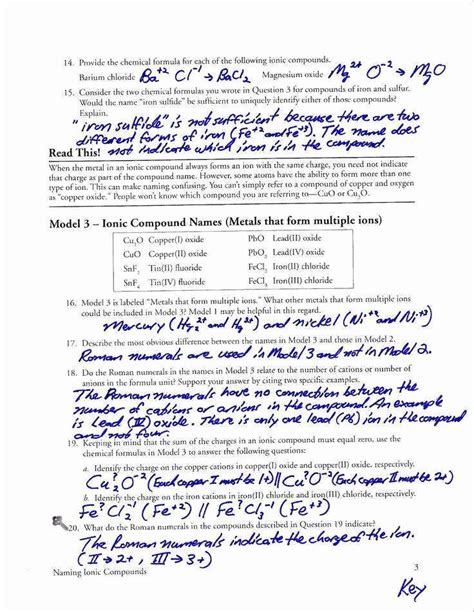 14. Provide the chemical formula for each of the following ionic compounds.
Barium chloride Ba⁺² Cl⁻¹ → BaCl₂ Magnesium oxide Mg²⁺ O⁻² → MgO
15. Consider the two chemical formulas you wrote in Question 3 for compounds of iron and sulfur.
Would the name "iron sulfide" be sufficient to uniquely identify either of those compounds?
Explain.
"iron sulfide" is not sufficient because there are two
different forms of iron (Fe⁺² and Fe⁺³). The name does
not indicate which iron is in the compound.
Read This!
When the metal in an ionic compound always forms an ion with the same charge, you need not indicate
that charge as part of the compound name. However, some atoms have the ability to form more than one
type of ion. This can make naming confusing. You can't simply refer to a compound of copper and oxygen
as "copper oxide." People won't know which compound you are referring to—CuO or Cu₂O.
Model 3 – Ionic Compound Names (Metals that form multiple ions)
Cu₂O Copper(I) oxide PbO Lead(II) oxide
CuO Copper(II) oxide PbO₂ Lead(IV) oxide
SnF₂ Tin(II) fluoride FeCl₂ Iron(II) chloride
SnF₄ Tin(IV) fluoride FeCl₃ Iron(III) chloride
16. Model 3 is labeled "Metals that form multiple ions." What other metals that form multiple ions
could be included in Model 3? Model 1 may be helpful in this regard.
Mercury (Hg₂²⁺ and Hg²⁺) and nickel (Ni⁺² and Ni⁺³)
17. Describe the most obvious difference between the names in Model 3 and those in Model 2.
Roman numerals are used in Model 3 and not in Model 2.
18. Do the Roman numerals in the names in Model 3 relate to the number of cations or number of
anions in the formula unit? Support your answer by citing two specific examples.
The Roman numerals have no connection between the
number of cations or anions in the compound. An example
is Lead (IV) oxide. There is only one lead (Pb) ion in the compound
and not four.
19. Keeping in mind that the sum of the charges in an ionic compound must equal zero, use the
chemical formulas in Model 3 to answer the following questions:
a. Identify the charge on the copper cations in copper(I) oxide and copper(II) oxide, respectively.
Cu₂? O⁻² (Each copper I must be 1+) || Cu? O⁻² (Each copper II must be 2+)
b. Identify the charge on the iron cations in iron(II) chloride and iron(III) chloride, respectively.
Fe? Cl₂⁻¹ (Fe⁺²) || Fe? Cl₃⁻¹ (Fe⁺³)
20. What do the Roman numerals in the compounds described in Question 19 indicate?
The Roman numerals indicate the charge of the ion.
(II → 2+, III → 3+)
Naming Ionic Compounds 3
Key